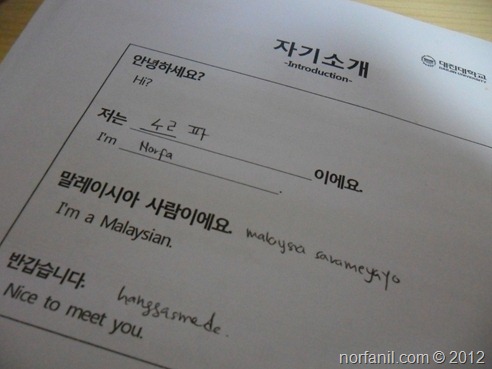 자기소개
-Introduction-
대진대학교
DAEJIN UNIVERSITY
안녕하세요?
Hi?
저는 수르 파 이에요.
I'm Norfa.
말레이시아 사람이에요. malaysia sarameyeyo
I'm a Malaysian.
반갑습니다. hanggasmede.
Nice to meet you.
norfanil.com © 2012